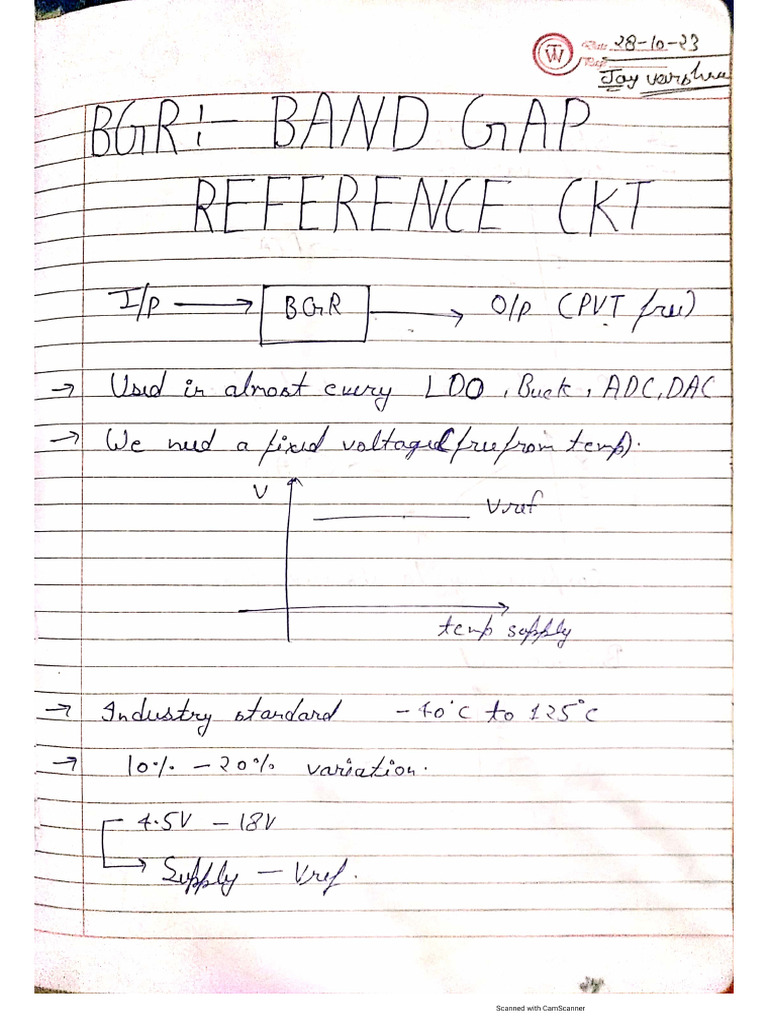 Date 28-10-23
Jay varshne
BGR:- BAND GAP
REFERENCE CKT
I/p → BGR → O/p (PVT free)
→ Used in almost every LDO, Buck, ADC, DAC
→ We need a fixed voltage (free from temp).
V
Vref
temp supply
→ Industry standard -40°C to 125°C
→ 10% - 20% variation.
4.5V - 18V
→ Supply - Vref.
Scanned with CamScanner